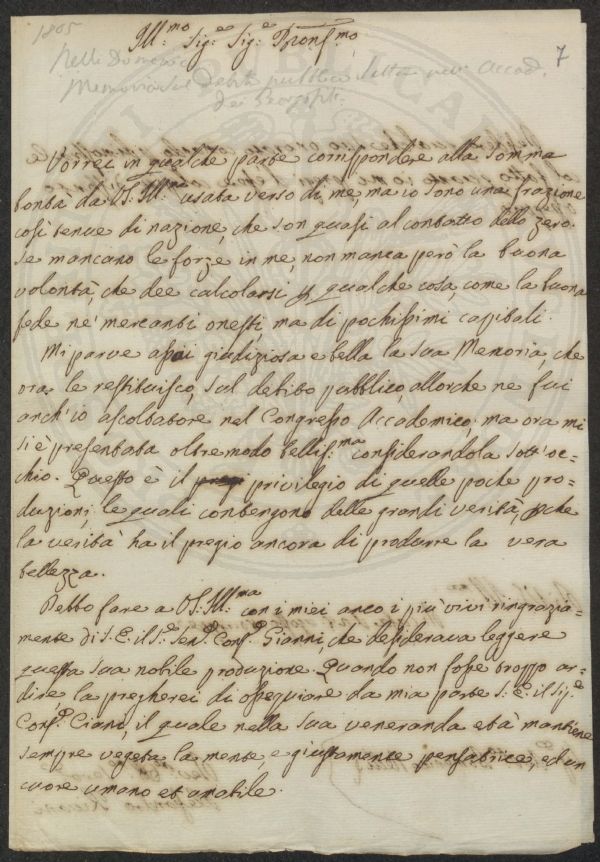 1805
Ill:mo Sig:e Sig:e Pron: mo
7
Nelli Domenico
Memoria sul Debito pubblico letta nell' Accad.
dei Georgofili
Vorrei in qualche parte corrispondere alla somma
bontà da V.S. Ill:ma usata verso di me, ma io sono una frazione
così tenue di nazione, che son quasi al contatto dello zero.
Se mancano le forze in me, non manca però la buona
volontà, che dee calcolarsi p qualche cosa, come la buona
fede ne' mercanti onesti, ma di pochissimi capitali.
Mi parve assai giudiziosa e bella la sua Memoria, che
ora le restituisco, sul debito pubblico, allorche ne fui
anch'io ascoltatore nel Congresso Accademico: ma ora mi
si è presentata oltremodo bellis:ma considerandola sott'oc=
chio. Questo è il privilegio di quelle poche pro=
duzioni, le quali contengono delle grandi verità, pche
la verità ha il pregio ancora di produrre la vera
bellezza.
Debbo fare a V.S. Ill:ma con i miei anco i più vivi ringrazia=
mente di S. E. il S:e Sen:e Cons:e Gianni, che desiderava leggere
questa sua nobile produzione. Quando non fosse troppo ar=
dire la pregherei di ossequiare da mia parte S. E. il Sig:e
Cons:e Ciani, il quale nella sua veneranda età mantiene
sempre vegeta la mente, e giustamente pensatrice, ed un
cuore umano et amabile.